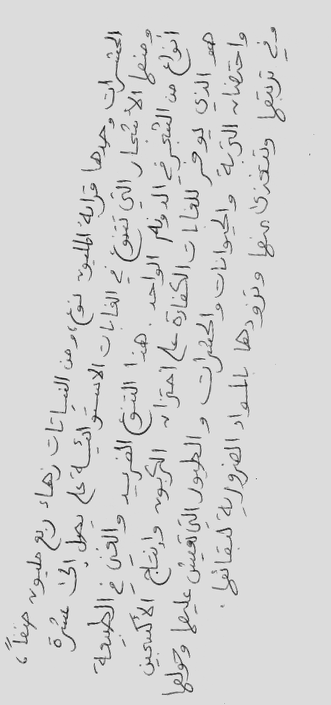 الحشرات وحدها قرابة المليون نوع، ومن النباتات زهاء ربع مليون صنفاً،
ومنها الاشجار التي تتنوع في الغابات الاستوائية على يصل إلى عشرة
أنواع من الشجر في الدونم الواحد. هذا التنوع الفريد والغني في الطبيعة
هو الذي يوفر للغابات الكفاءة على اختزان الكربون وإنتاج الأكسجين
واحتضان التربة والحيوانات والحشرات والطيور التي تعيش عليها وحولها
وفي تربتها وتتغذى منها وتزودها بالمواد الضرورية لبقائها.